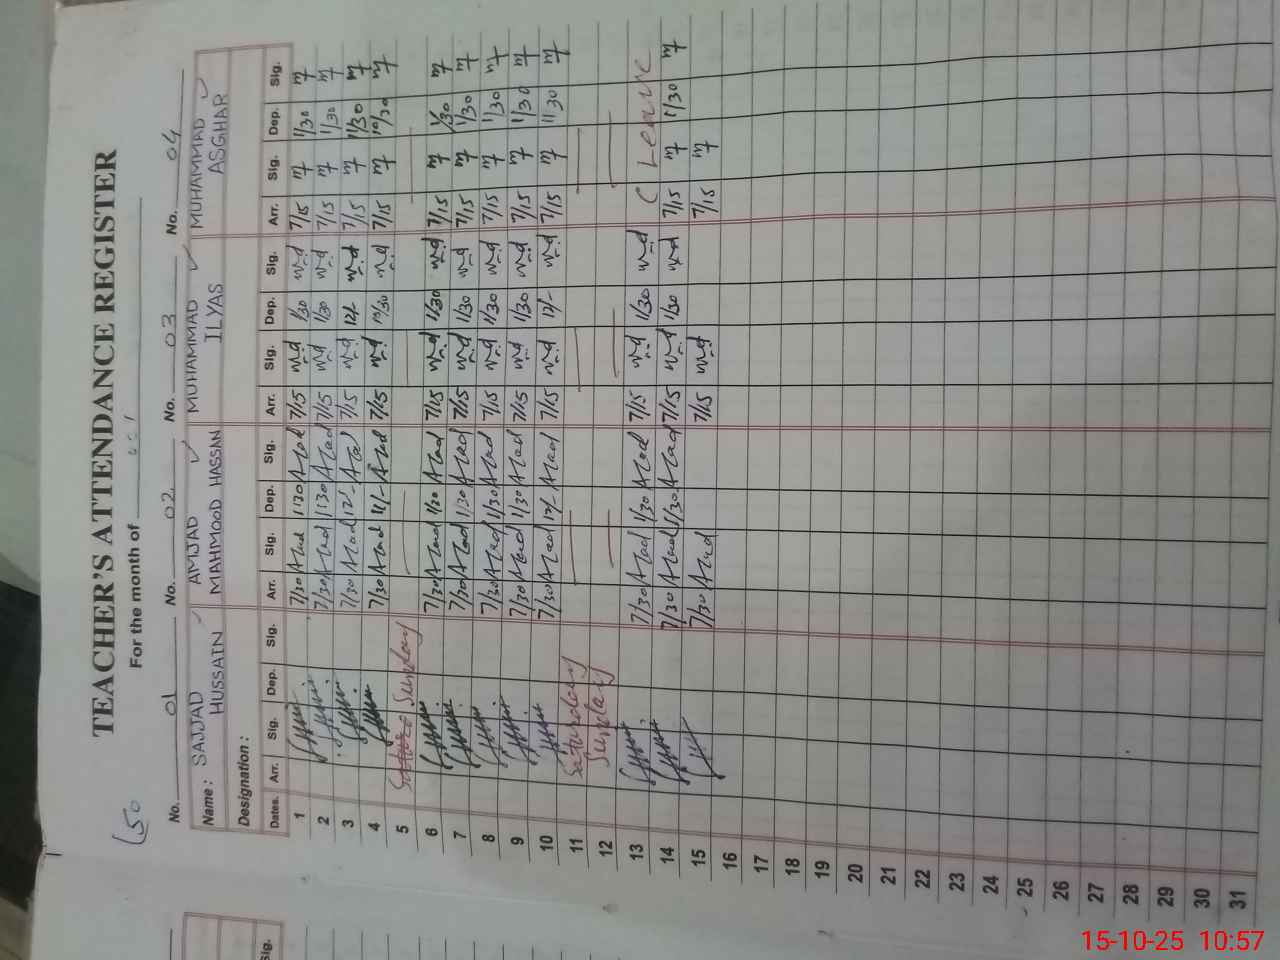 TEACHER'S ATTENDANCE REGISTER
For the month of
50
No. 01 No. 02 No. 03 No. 04
Name: SAJJAD HUSSAIN AMJAD MAHMOOD HASSAN MUHAMMAD ILYAS MUHAMMAD ASGHAR
Designation:
Dates. Arr. Sig. Dep. Sig. Arr. Sig. Dep. Sig. Arr. Sig. Dep. Sig. Arr. Sig. Dep. Sig.
1 7/30 Azad 1:30 Azad 7/15 1/30 7/15 11/30
2 7/30 Azad 1:30 Azad 7/15 1/30 7/15 11/30
3 7/30 Azad 12/- Azad 7/15 12/- 7/15 11/30
4 7/30 Azad 11/- Azad 7/15 10/30 7/15 10/30
5 Sunday
6 7/30 Azad 1/30 Azad 7/15 1/30 7/15 1/30
7 7/30 Azad 1/30 Azad 7/15 1/30 7/15 1/30
8 7/30 Azad 1/30 Azad 7/15 1/30 7/15 11/30
9 7/30 Azad 1/30 Azad 7/15 1/30 7/15 11/30
10 7/30 Azad 12/- Azad 7/15 12/- 7/15 11/30
11 Saturday
12 Sunday
13 7/30 Azad 1/30 Azad 7/15 1/30 C Leave
14 7/30 Azad 1/30 Azad 7/15 1/30 7/15 11/30
15 7/30 Azad 7/15 7/15
16
17
18
19
20
21
22
23
24
25
26
27
28
29
30
31
Sig.
15-10-25 10:57